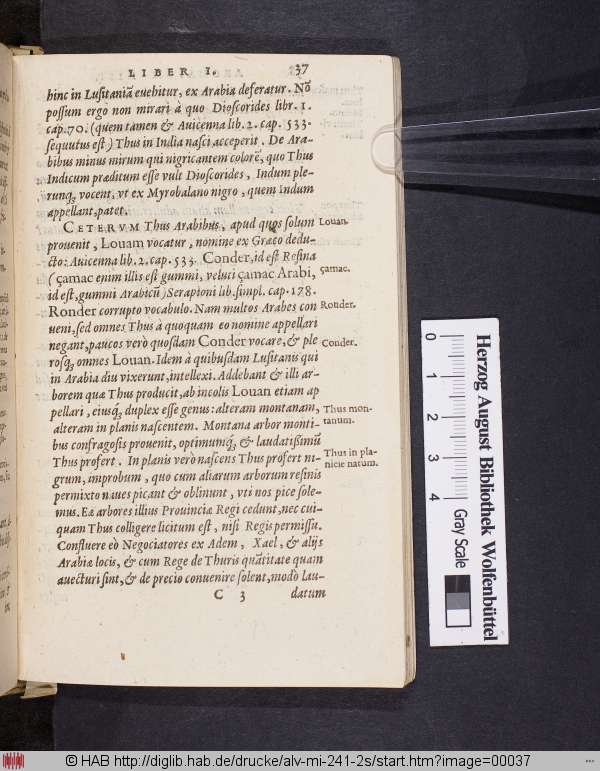 LIBER I. 37
hinc in Lusitaniā euehitur, ex Arabia deferatur. Nō
possum ergò non mirari à quo Dioscorides libr. 1.
cap. 70. (quem tamen & Auicenna lib. 2. cap. 533.
sequutus est) Thus in India nasci acceperit. De Ara-
bibus minus mirum qui nigricantem colorē, quo Thus
Indicum præditum esse vult Dioscorides, Indum ple-
runq, vocent, vt ex Myrobalano nigro, quem Indum
appellant, patet.
CETERVM Thus Arabibus, apud quos solum
Louan.
prouenit, Louam vocatur, nomine ex Græco dedu-
cto: Auicenna lib. 2. cap. 533. Conder, id est Resina
(çamac enim illis est gummi, veluti çamac Arabi,
çamac.
id est, gummi Arabicū) Serapioni lib. simpl. cap. 178.
Ronder corrupto vocabulo. Nam multos Arabes con
Ronder.
ueni, sed omnes Thus à quoquam eo nomine appellari
negant, paucos verò quosdam Conder vocare, & ple
Conder.
rosq, omnes Louan. Idem à quibusdam Lusitanis qui
in Arabia diu vixerunt, intellexi. Addebant & illi ar-
borem quæ Thus producit, ab incolis Louan etiam ap
pellari, eiusq, duplex esse genus: alteram montanam,
Thus mon-
tanum.
alteram in planis nascentem. Montana arbor monti-
bus confragosis prouenit, optimumq, & laudatissimū
Thus profert. In planis verò nascens Thus profert ni-
Thus in pla-
nicie natum.
grum, improbum, quo cum aliarum arborum resinis
permixto naues picant & oblinunt, vti nos pice sole-
mus. Eæ arbores illius Prouinciæ Regi cedunt, nec cui-
quam Thus colligere licitum est, nisi Regis permissu.
Confluere eò Negociatores ex Adem, Xael, & alijs
Arabiæ locis, & cum Rege de Thuris quātitate quam
auecturi sint, & de precio conuenire solent, modò lau-
C 3 datum
0 1 2 3 4
Gray Scale
Herzog August Bibliothek Wolfenbüttel
© HAB http://diglib.hab.de/drucke/alv-mi-241-2s/start.htm?image=00037